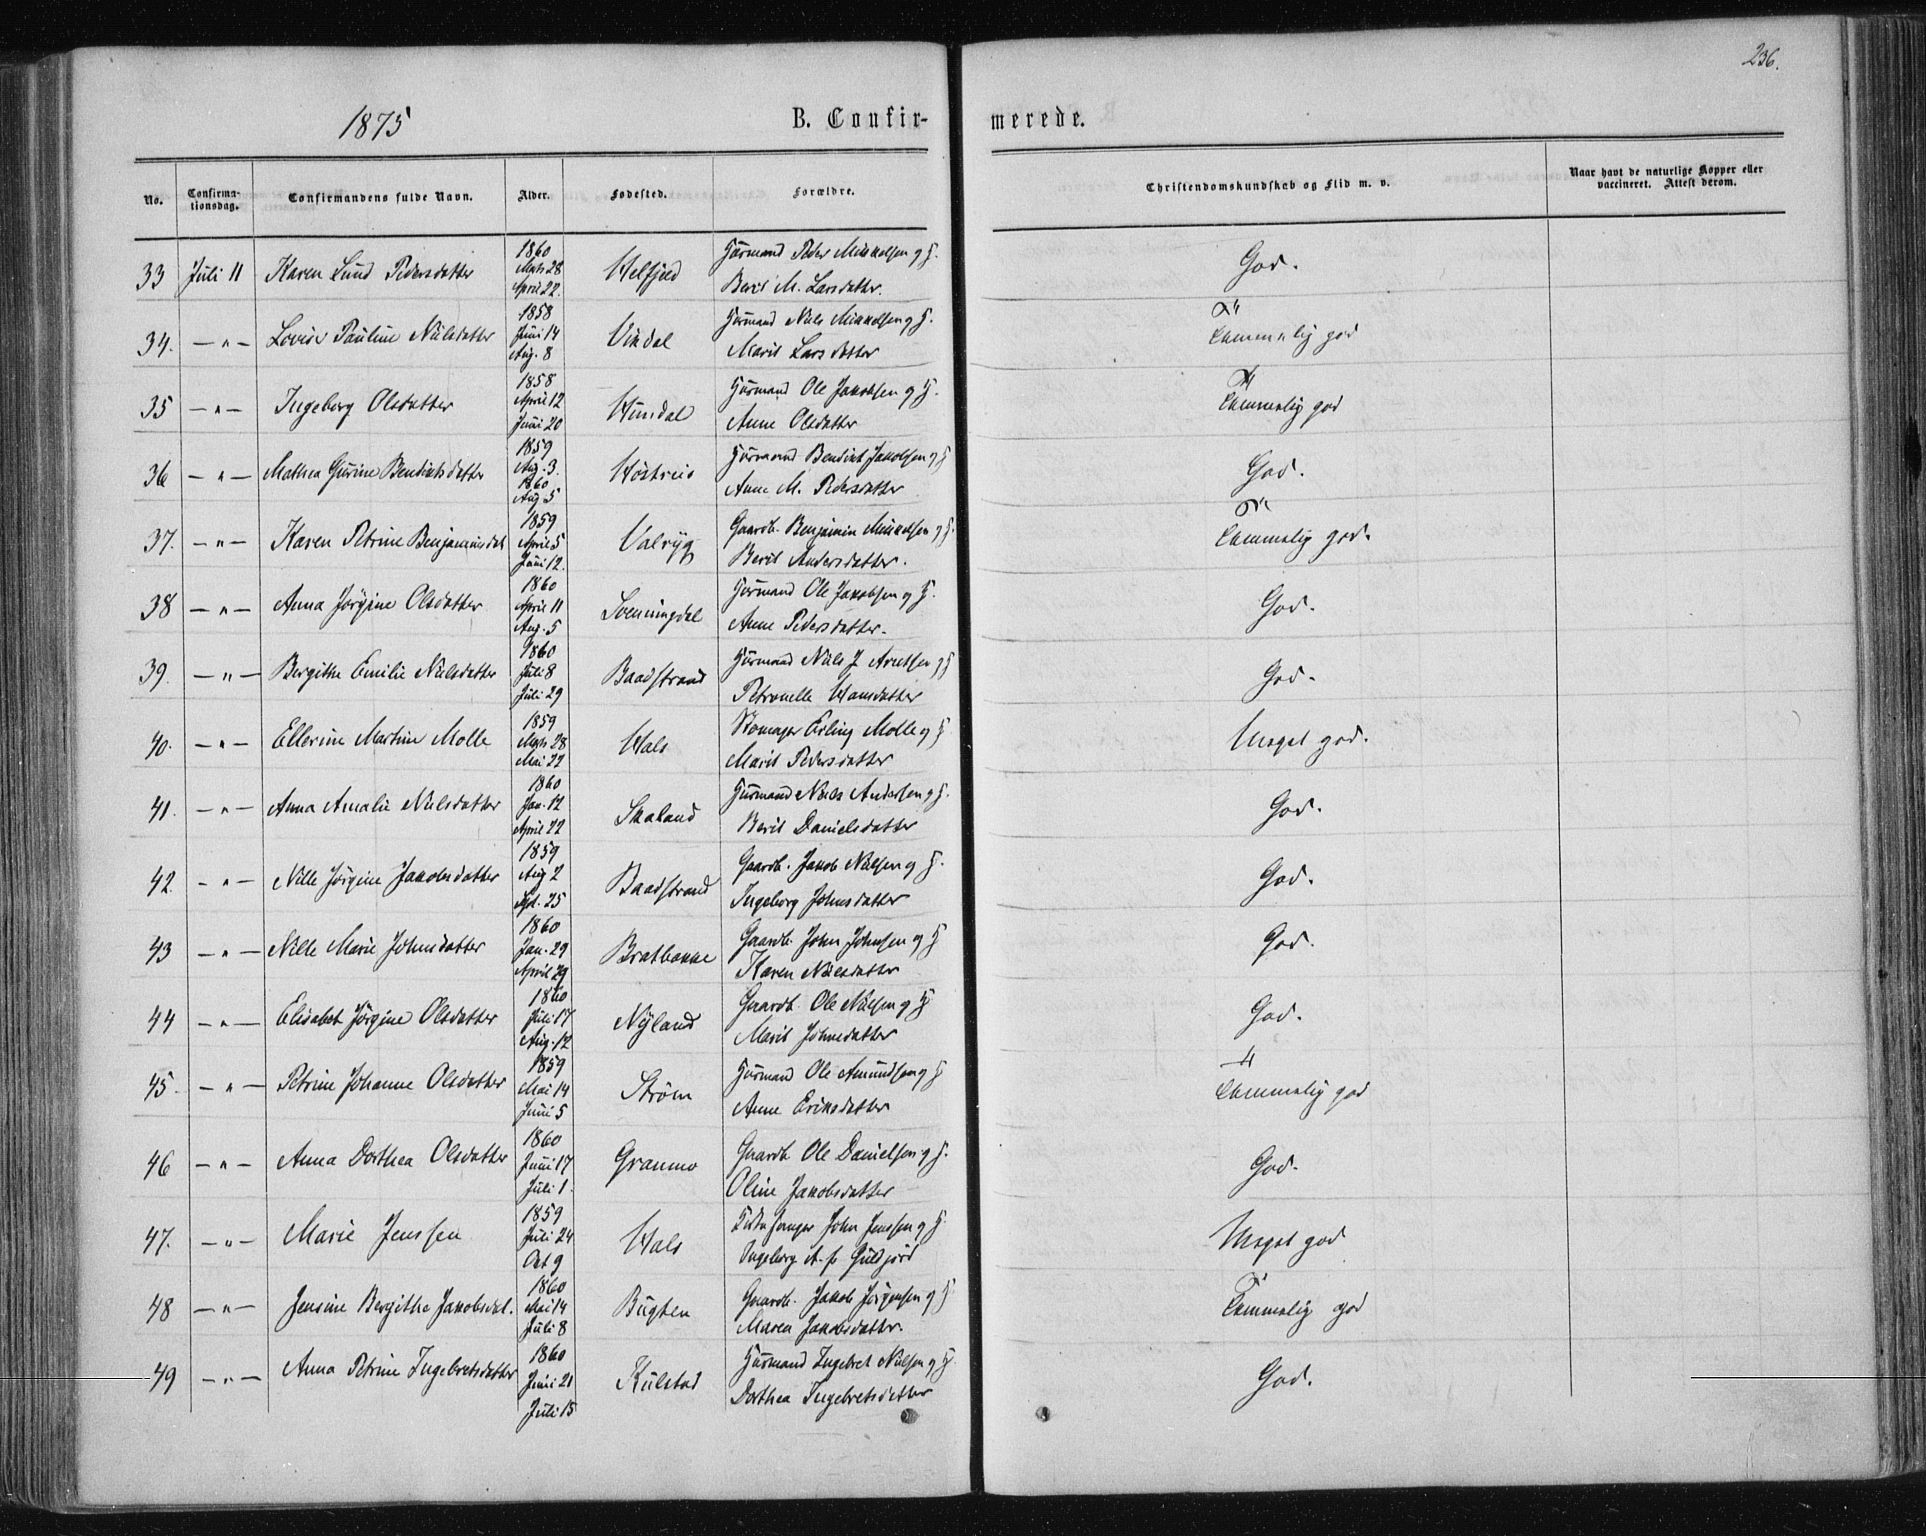 236.
1875 B. Confir- merede.
No. Confirma-tionsdag. Confirmandens fulde Navn. Alder. Fødested. Forældre. Christendomskundskab og Flid m. v. Naar havt de naturlige Kopper eller vaccineret. Attest derom.
33 Juli 11 Karen Lund Pedersdatter 1860 Marts 28 April 22. Helfjeld Husmand Peder Mikkelsen og H. Berit M. Larsdatter. God.
34. — " — Lovise Pauline Nielsdatter 1858 Juni 14 Aug. 8 Vikdal Husmand Niels Mikkelsen og H. Marit Larsdatter Temmelig god
35 — " — Ingeborg Olsdatter 1858 April 12 Juni 20 Hundal Husmand Ole Jakobsen og H. Anne Olsdatter Temmelig god
36 — " — Mathea Gurine Bendiktsdatter 1859 Aug. 3. 1860 Aug 5 Husmand Bendikt Jakobsen og H Anne M. Pedersdatter God.
37. — " — Karen Petrine Benjaminsdat 1859 April 5 Juni 12. Valryg Gaardb. Benjamin Mikkelsen og H. Berit Andersdatter. Temmelig god.
38 — " — Anna Jørgine Olsdatter 1860 April 11 Aug. 5 Svenningdal Husmand Ole Jakobsen og H. Anne Pedersdatter. God.
39. — " — Bergithe Emilie Nielsdatter 1860 Juli 8 Juli 29 Baadstrand Husmand Niels J Arntsen og H Petronelle Hansdatter God.
40. — " — Ellerine Martine Molle 1859 Marts 28 Mai 22 Hals Skomager Erling Molle og H Marit Pedersdatter Meget god.
41. — " — Anna Amalie Nielsdatter 1860 Jan. 12 April 22 Skaland Husmand Niels Andersen og H. Berit Danielsdatter God.
42. — " — Nille Jørgine Jakobsdatter 1859 Aug 2 Spt. 25 Baadstrand Gaardb. Jakob Nielsen og H. Ingeborg Johnsdatter God.
43 — " — Nille Marie Johnsdatter 1860 Jan. 29 April 29 Bratbakke Gaardb. John Johnsen og H Karen Nielsdatter God.
44 — " — Elisabet Jørgine Olsdatter 1860 Juli 17 Aug. 12 Nyland Gaardb. Ole Nielsen og H Marit Johnsdatter God.
45. — " — Petrine Johanne Olsdatter 1859 Mai 14 Juni 5 Strøm Husmand Ole Amundsen og H Anne Eriksdatter Temmelig god
46 — " — Anna Dorthea Olsdatter 1860 Juni 17 Juli 1. Granmo Gaardb. Ole Danielsen og H. Oline Jakobsdatter God.
47. — " — Marie Jenssen 1859 Juli 24 Oct 9 Hals John Jenssen og H. Ingeborg A. f. Guldjord Meget god
48 — " — Jensine Bergitha Jakobsdat. 1860 Mai 14 Juli 8 Bugten Gaardb. Jakob Jørgensen og H. Maren Jakobsdatter. Temmelig god
49 — " — Anna Petrine Ingebretsdatter 1860 Juni 21 Juli 15 Kulstad Husmand Ingebret Nielsen og H. Dorthea Ingebretsdatter God.